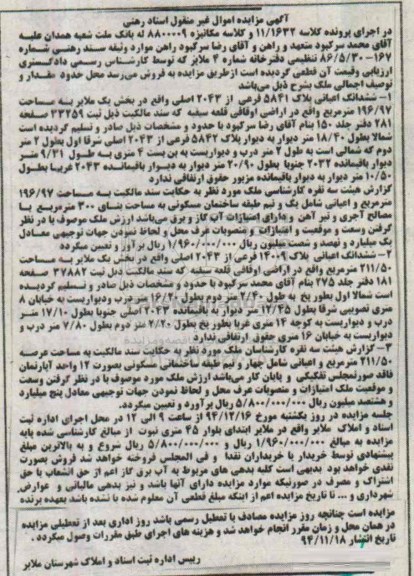 آگهی مزایده اموال غیر منقول اسناد رهنی
در اجرای پرونده کلاسه ۱۱/۱۶۳۲ و کلاسه مکانیزه ۸۸۰۰۰۹ له بانک ملت شعبه همدان علیه
آقای محمد سرکبود متعهد و راهن و آقای رضا سرکبود راهن موارد وثیقه سند رهنی شماره
۸۶/۵/۳۰-۱۶۷ تنظیمی دفترخانه شماره ۴ ملایر که توسط کارشناس رسمی دادگستری
ارزیابی وقیمت آن قطعی گردیده است از طریق مزایده به فروش می‌رسد محل حدود مقدار و
توصیف اجمالی ملک بشرح ذیل می‌باشد
۱- ششدانگ اعیانی پلاک ۵۸۴۱ فرعی از ۲۰۴۳ اصلی واقع در بخش یک ملایر به مساحت
۱۹۶/۹۷ مترمربع واقع در اراضی اوقافی قلعه سیفیه که سند مالکیت ذیل ثبت ۳۳۲۵۹ صفحه
۲۸۱ دفتر جلد ۱۵۰ بنام آقای رضا سرکبود با حدود و مشخصات ذیل صادر و تسلیم گردیده است
شمالا بطول ۱۸/۴۰ متر دیوار به دیوار پلاک ۵۸۴۲ فرعی از ۲۰۴۳ اصلی شرقا اول بطول ۲ متر
دوم که شمالی است به طول ۲ متر درب و دیواریست به بن بست ۴ متری به طول ۹/۳۱ متر
دیوار باقیمانده ۲۰۳۲ جنوبا بطول ۲۰/۹۰ متر دیوار به دیوار باقیمانده ۲۰۴۳ غربا بطول
۱۰/۵۰ متر دیوار به دیوار باقیمانده مزبور حقوق ارتفاقی ندارد
گزارش هیئت سه نفره کارشناسی ملک مورد نظر به حکایت سند مالکیت به مساحت ۱۹۶/۹۷
مترمربع و اعیانی شامل یک و نیم طبقه ساختمان مسکونی به مساحت بنای ۳۰۰ مترمربع با
مصالح آجری و تیر آهن و دارای امتیازات آب گاز و برق می‌باشد ارزش ملک موصوف با در نظر
گرفتن وسعت و موقعیت و امتیازات و منصوبات عرف محل و لحاظ نمودن جهات توجیهی معادل
یک میلیارد و نهصد و شصت میلیون ریال ۱/۹۶۰/۰۰۰/۰۰۰ ریال برآورد و تعیین میگردد
۲- ششدانگ اعیانی پلاک ۱۳۰۰۹ فرعی از ۲۰۴۳ اصلی واقع در بخش یک ملایر به مساحت
۲۱۱/۵۰ مترمربع واقع در اراضی اوقافی قلعه سیفیه که سند مالکیت ذیل ثبت ۳۷۸۸۲ صفحه
۱۸۱ دفتر جلد ۲۷۵ بنام آقای محمد سرکبود با حدود و مشخصات ذیل صادر و تسلیم گردیده
است شمالا اول بطور یخ به طول ۲/۴۰ متر دوم بطول ۱۶/۲۰ متر درب ودیواریست به خیابان ۸
متری تصویبی شرقا بطول ۱۲/۴۵ متر دیوار به باقیمانده ۲۰۴۳ اصلی جنوبا بطول ۱۷/۱۰ متر
درب و دیواریست به کوچه ۱۴ متری غربا بطور یخ بطول ۲/۲۰ متر دوم بطول ۷/۸۰ متر درب و
دیواریست به خیابان ۱۶ متری حقوق ارتفاقی ندارد
۳- گزارش هیئت سه نفره کارشناسان ملک مورد نظر به حکایت سند مالکیت به مساحت عرصه
۲۱۱/۵۰ مترمربع و اعیانی شامل چهار و نیم طبقه ساختمانی مسکونی بصورت ۱۲ واحد آپارتمان
فاقد صورتمجلس تفکیکی و پایان کار می‌باشد ارزش ملک مورد موصوف با در نظر گرفتن وسعت
و موقعیت ملک امتیازات و منصوبات عرف محل و لحاظ نمودن جهات توجیهی معادل پنج میلیارد
و هشتصد میلیون ریال ۵/۸۰۰/۰۰۰/۰۰۰ ریال برآورد و تعیین میگردد.
جلسه مزایده در روز یکشنبه مورخ ۹۴/۱۲/۱۶ از ساعت ۹ الی ۱۲ در محل اجرای اداره ثبت
اسناد و املاک ملایر واقع در ملایر ابتدای بلوار ۴۵ متری نبوت از مبالغ کارشناسی شده پایه
مزایده به مبالغ ۱/۹۶۰/۰۰۰/۰۰۰ ریال و ۵/۸۰۰/۰۰۰/۰۰۰ ریال شروع و به بالاترین مبلغ
پیشنهادی توسط خریدار یا خریداران نقدا و فی المجلس فروخته خواهد شد فروش بصورت
نقدی خواهد بود بدیهی است کلیه بدهی های مربوط به آب برق گاز اعم از حق انشعاب یا حق
اشتراک و مصرف در صورتیکه موارد مزایده دارای آنها باشد و نیز بدهی مالیاتی و عوارض
شهرداری و ... تا تاریخ مزایده اعم از اینکه مبلغ قطعی آن معلوم شده یا نشده باشد بعهده برنده
مزایده است چنانچه روز مزایده مصادف با تعطیل رسمی باشد روز اداری بعد از تعطیلی مزایده
در همان محل و زمان مقرر انجام خواهد شد و هزینه های اجرای طبق مقررات وصول میگردد.
تاریخ انتشار ۹۴/۱۱/۱۸
رییس اداره ثبت اسناد و املاک شهرستان ملایر